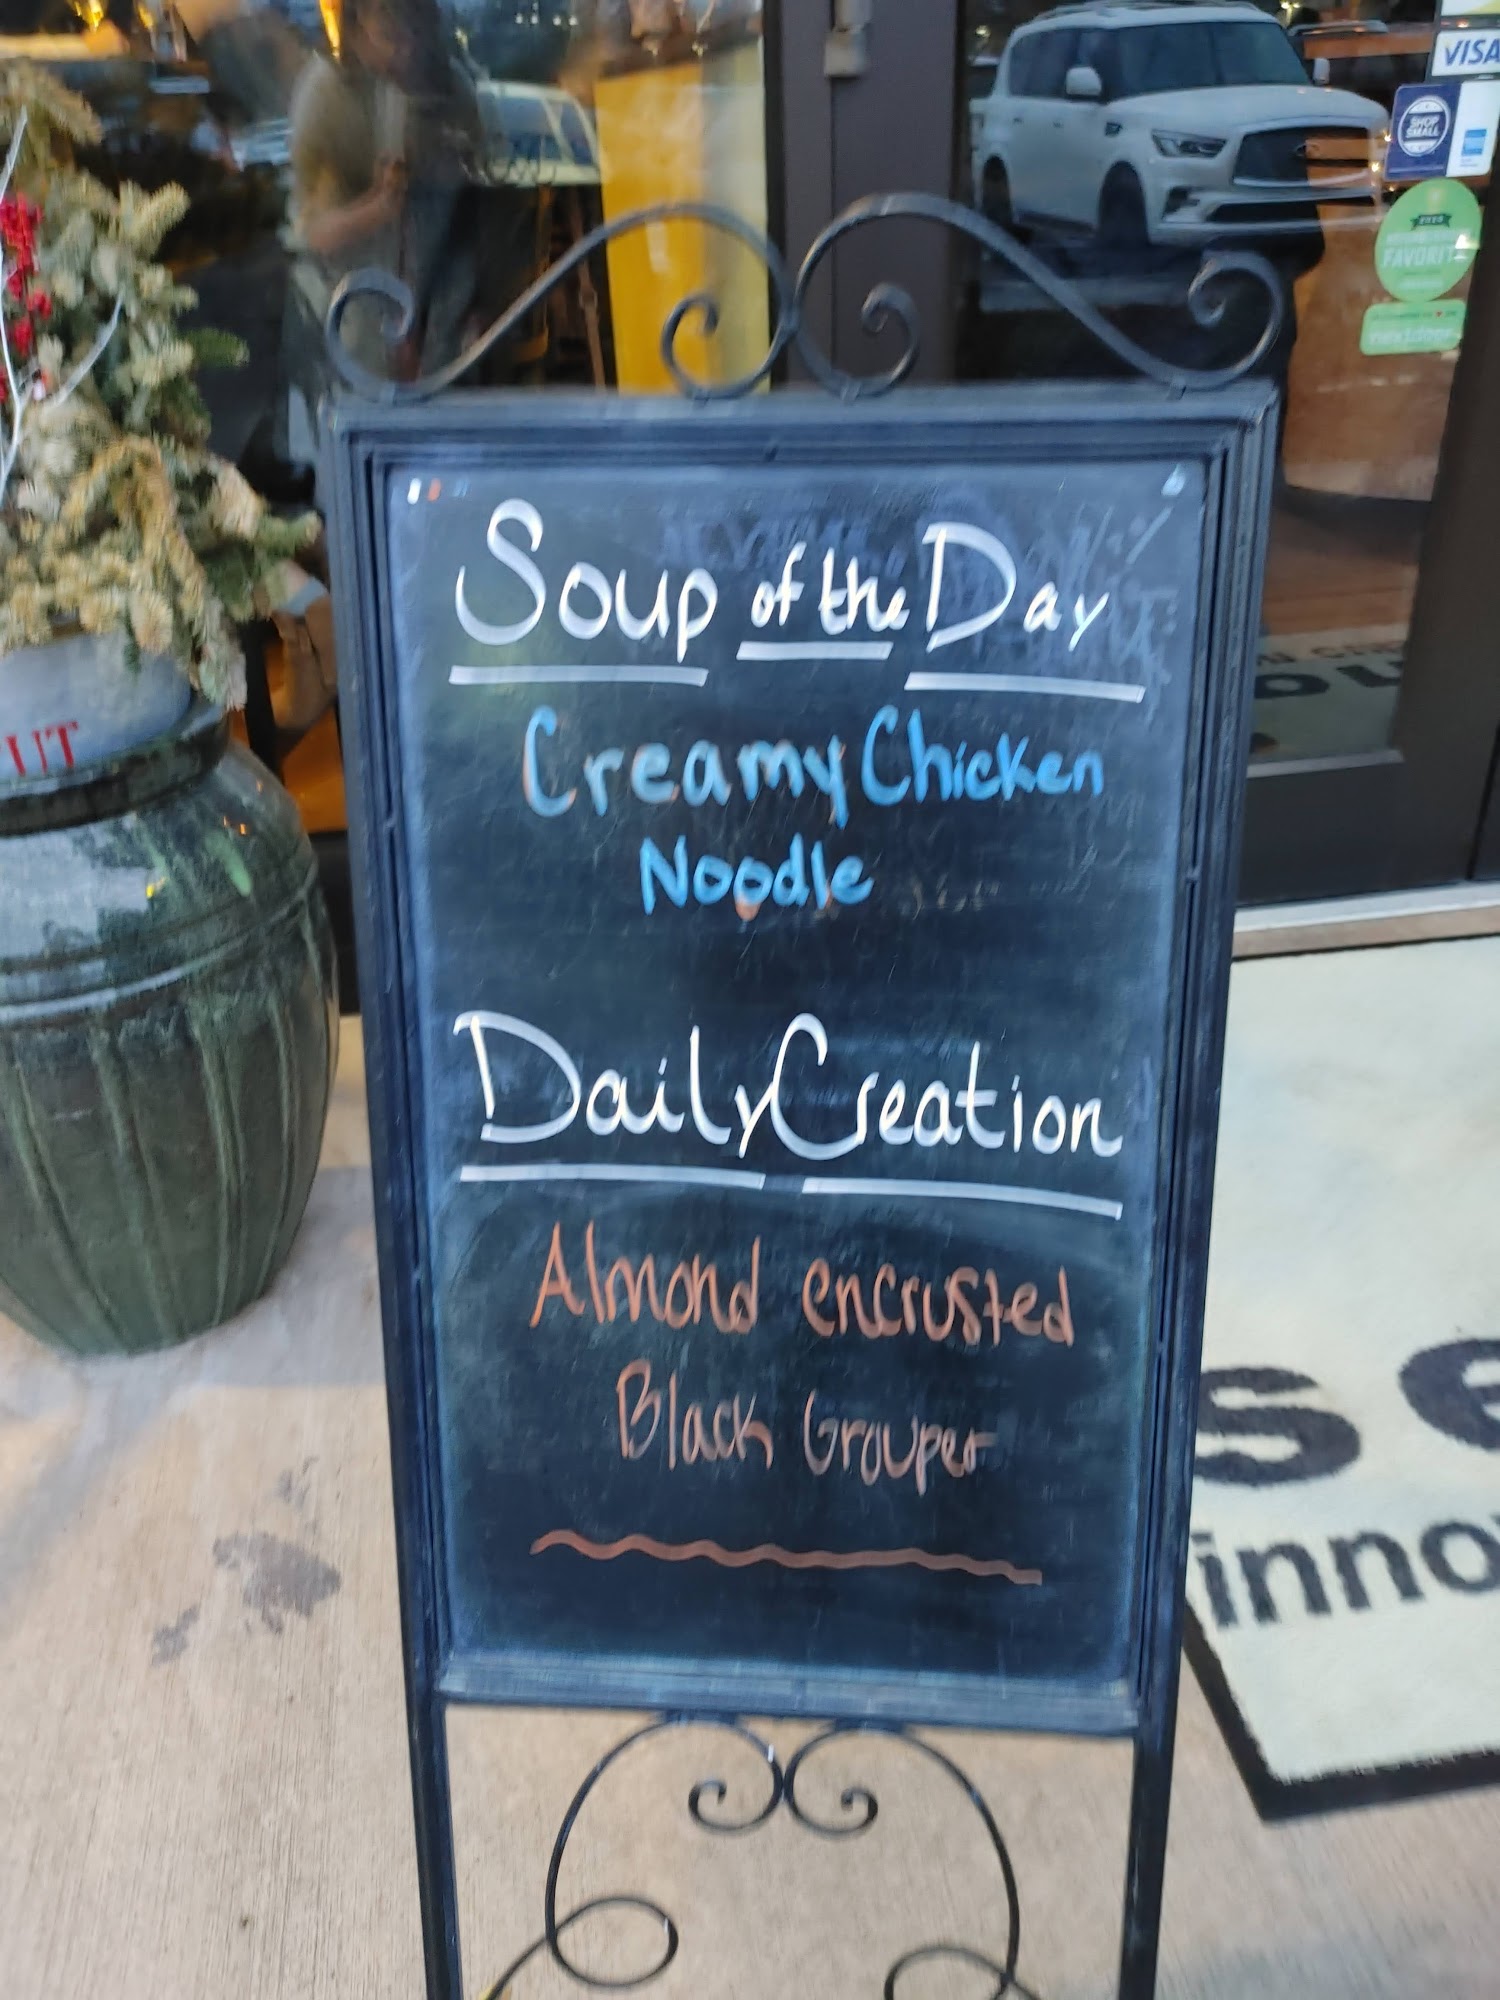 VISA
SHOP
SMALL
FAVORIT
Soup of the Day
Creamy Chicken
Noodle
Daily Creation
Almond encrusted
Black Grouper
se
inno